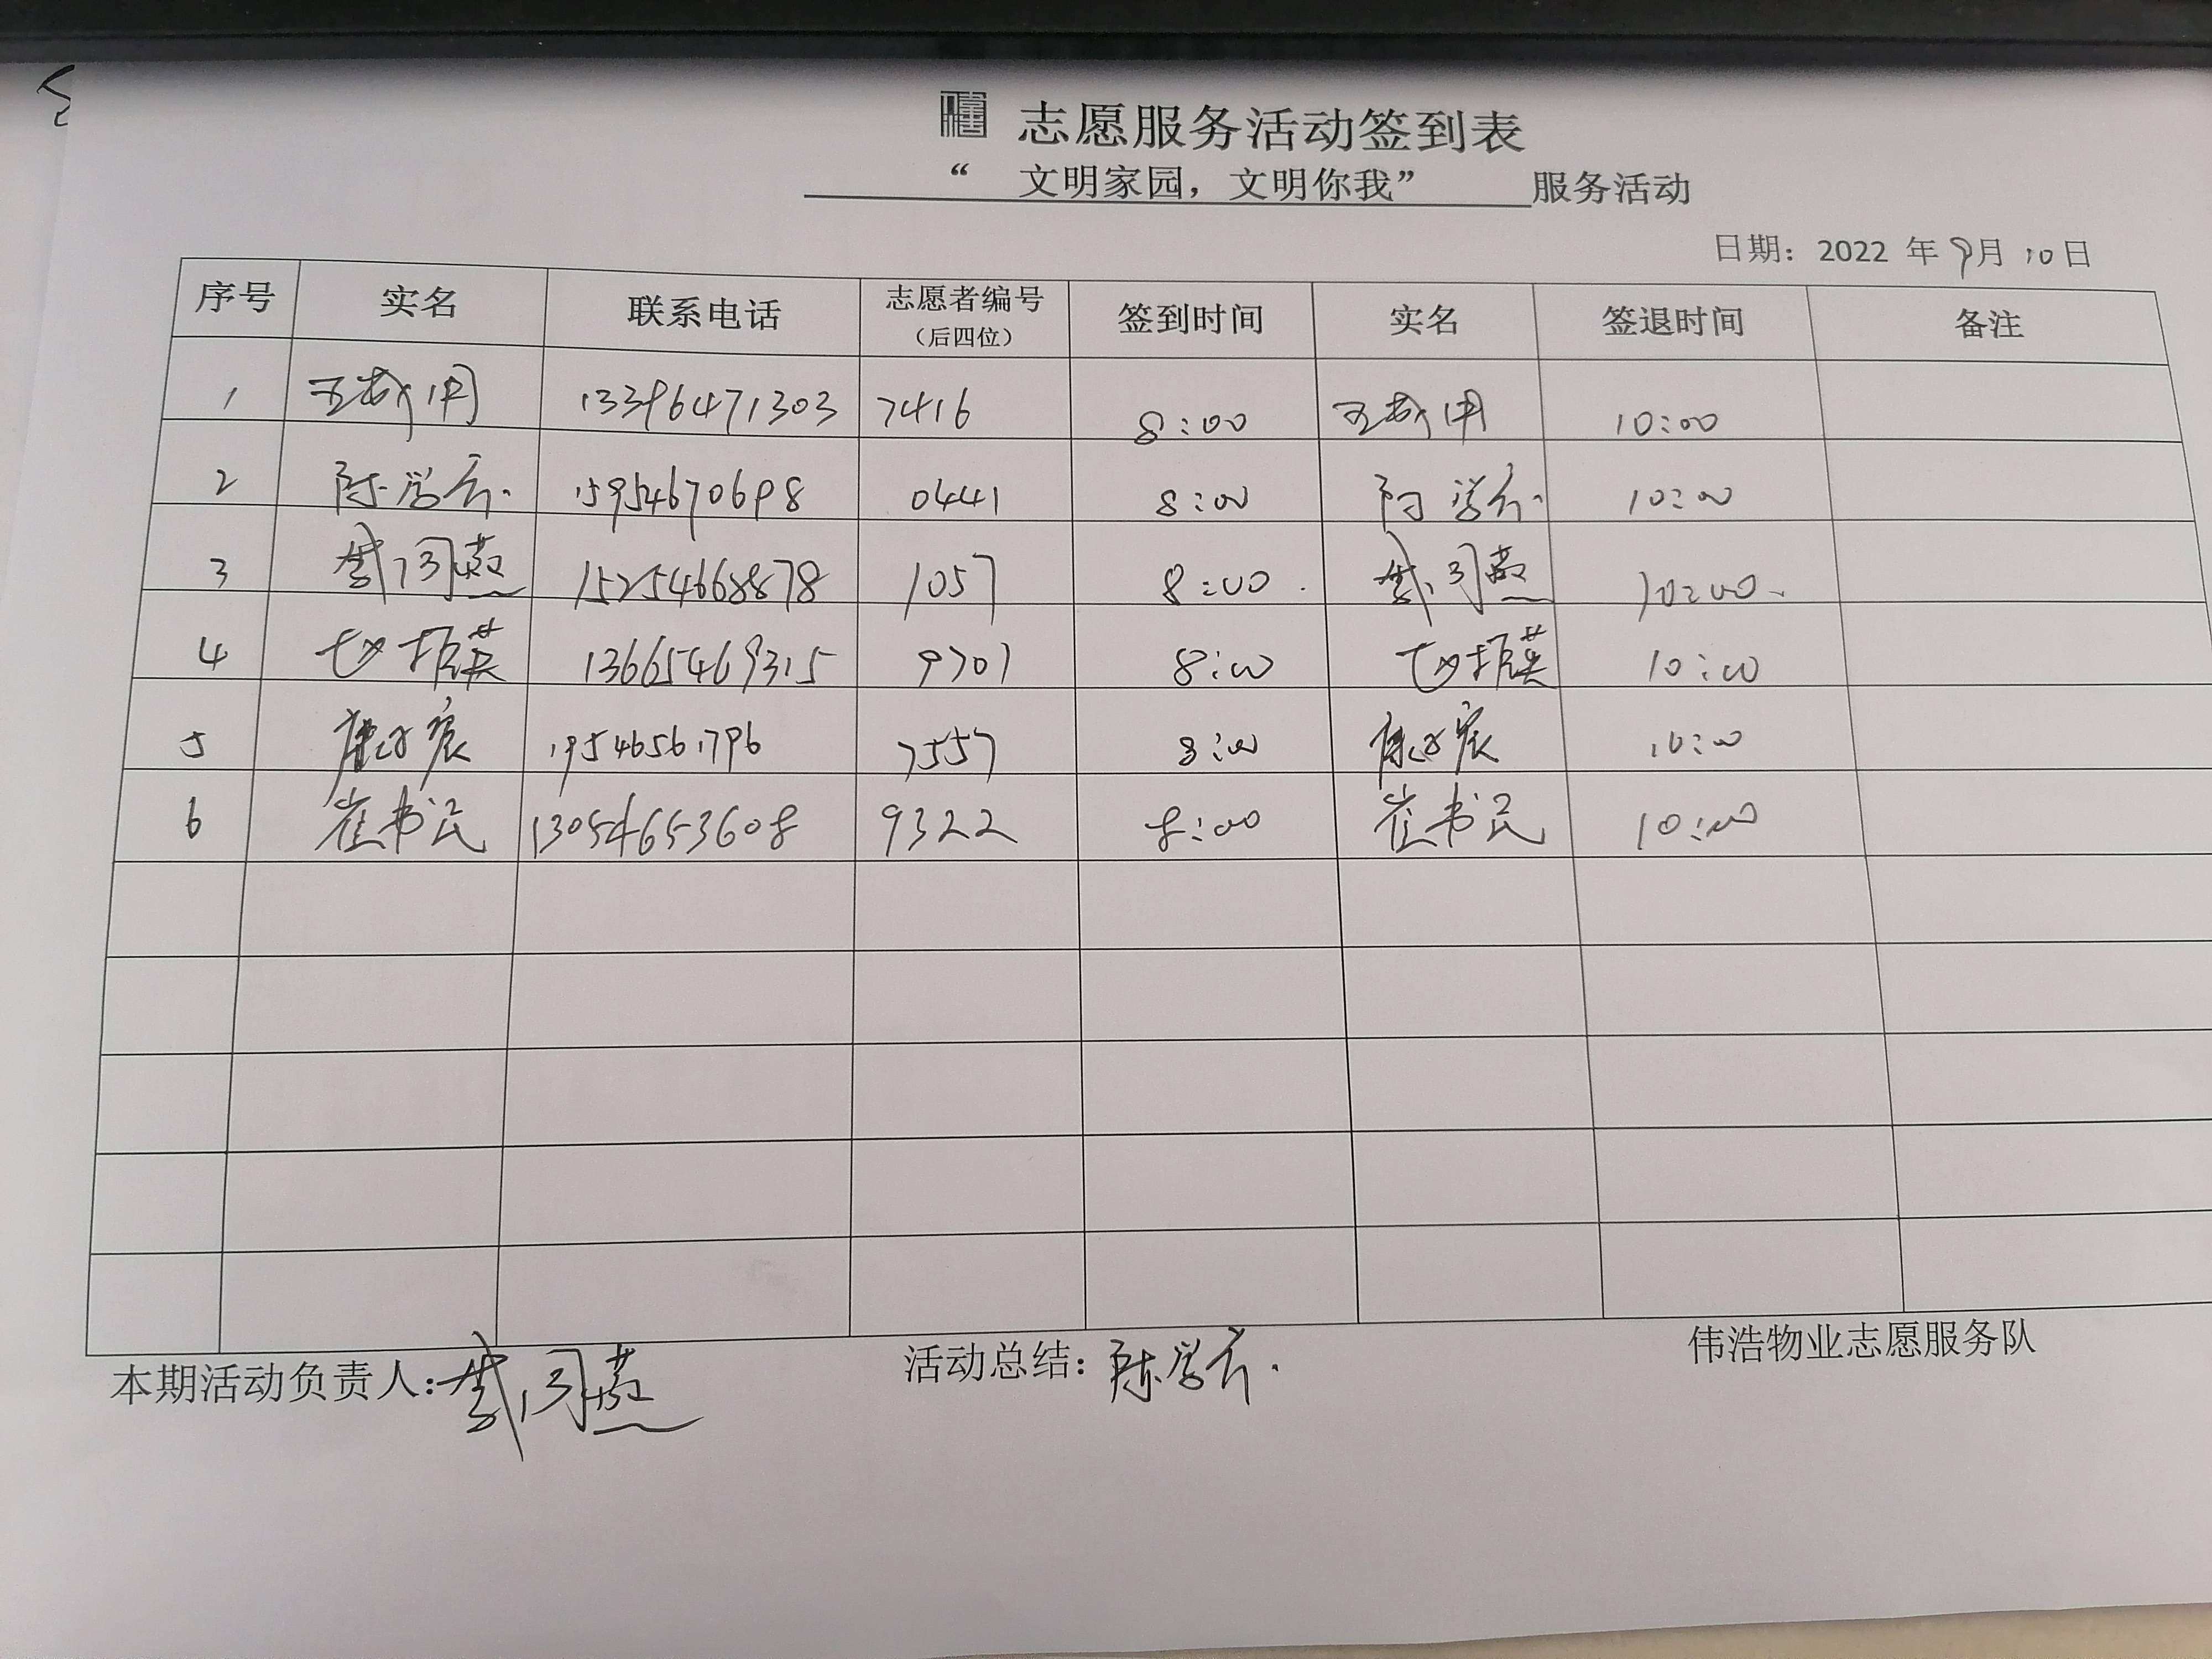 志愿服务活动签到表
“ 文明家园，文明你我” 服务活动
日期：2022 年 9月 10日
序号 实名 联系电话 志愿者编号（后四位） 签到时间 实名 签退时间 备注
1 13396471303 7416 8:00 10:00
2 陈学 15954670698 0441 8:00 陈学 10:00
3 15254668878 1057 8:00 10:00
4 振英 13665469315 9701 8:00 振英 10:00
5 19546561796 7557 8:00 10:00
6 崔书民 13054653608 9322 8:00 崔书民 10:00
本期活动负责人： 活动总结：陈学 伟浩物业志愿服务队